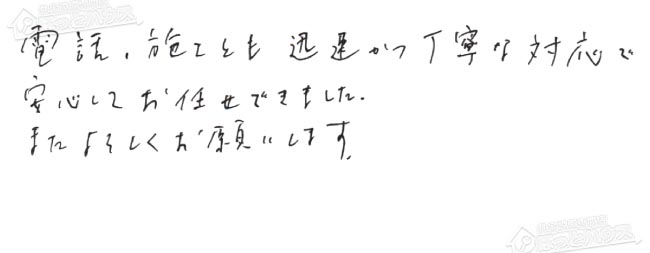 電話、施工とも 迅速かつ丁寧な対応で
安心してお任せできました。
またよろしくお願いします。